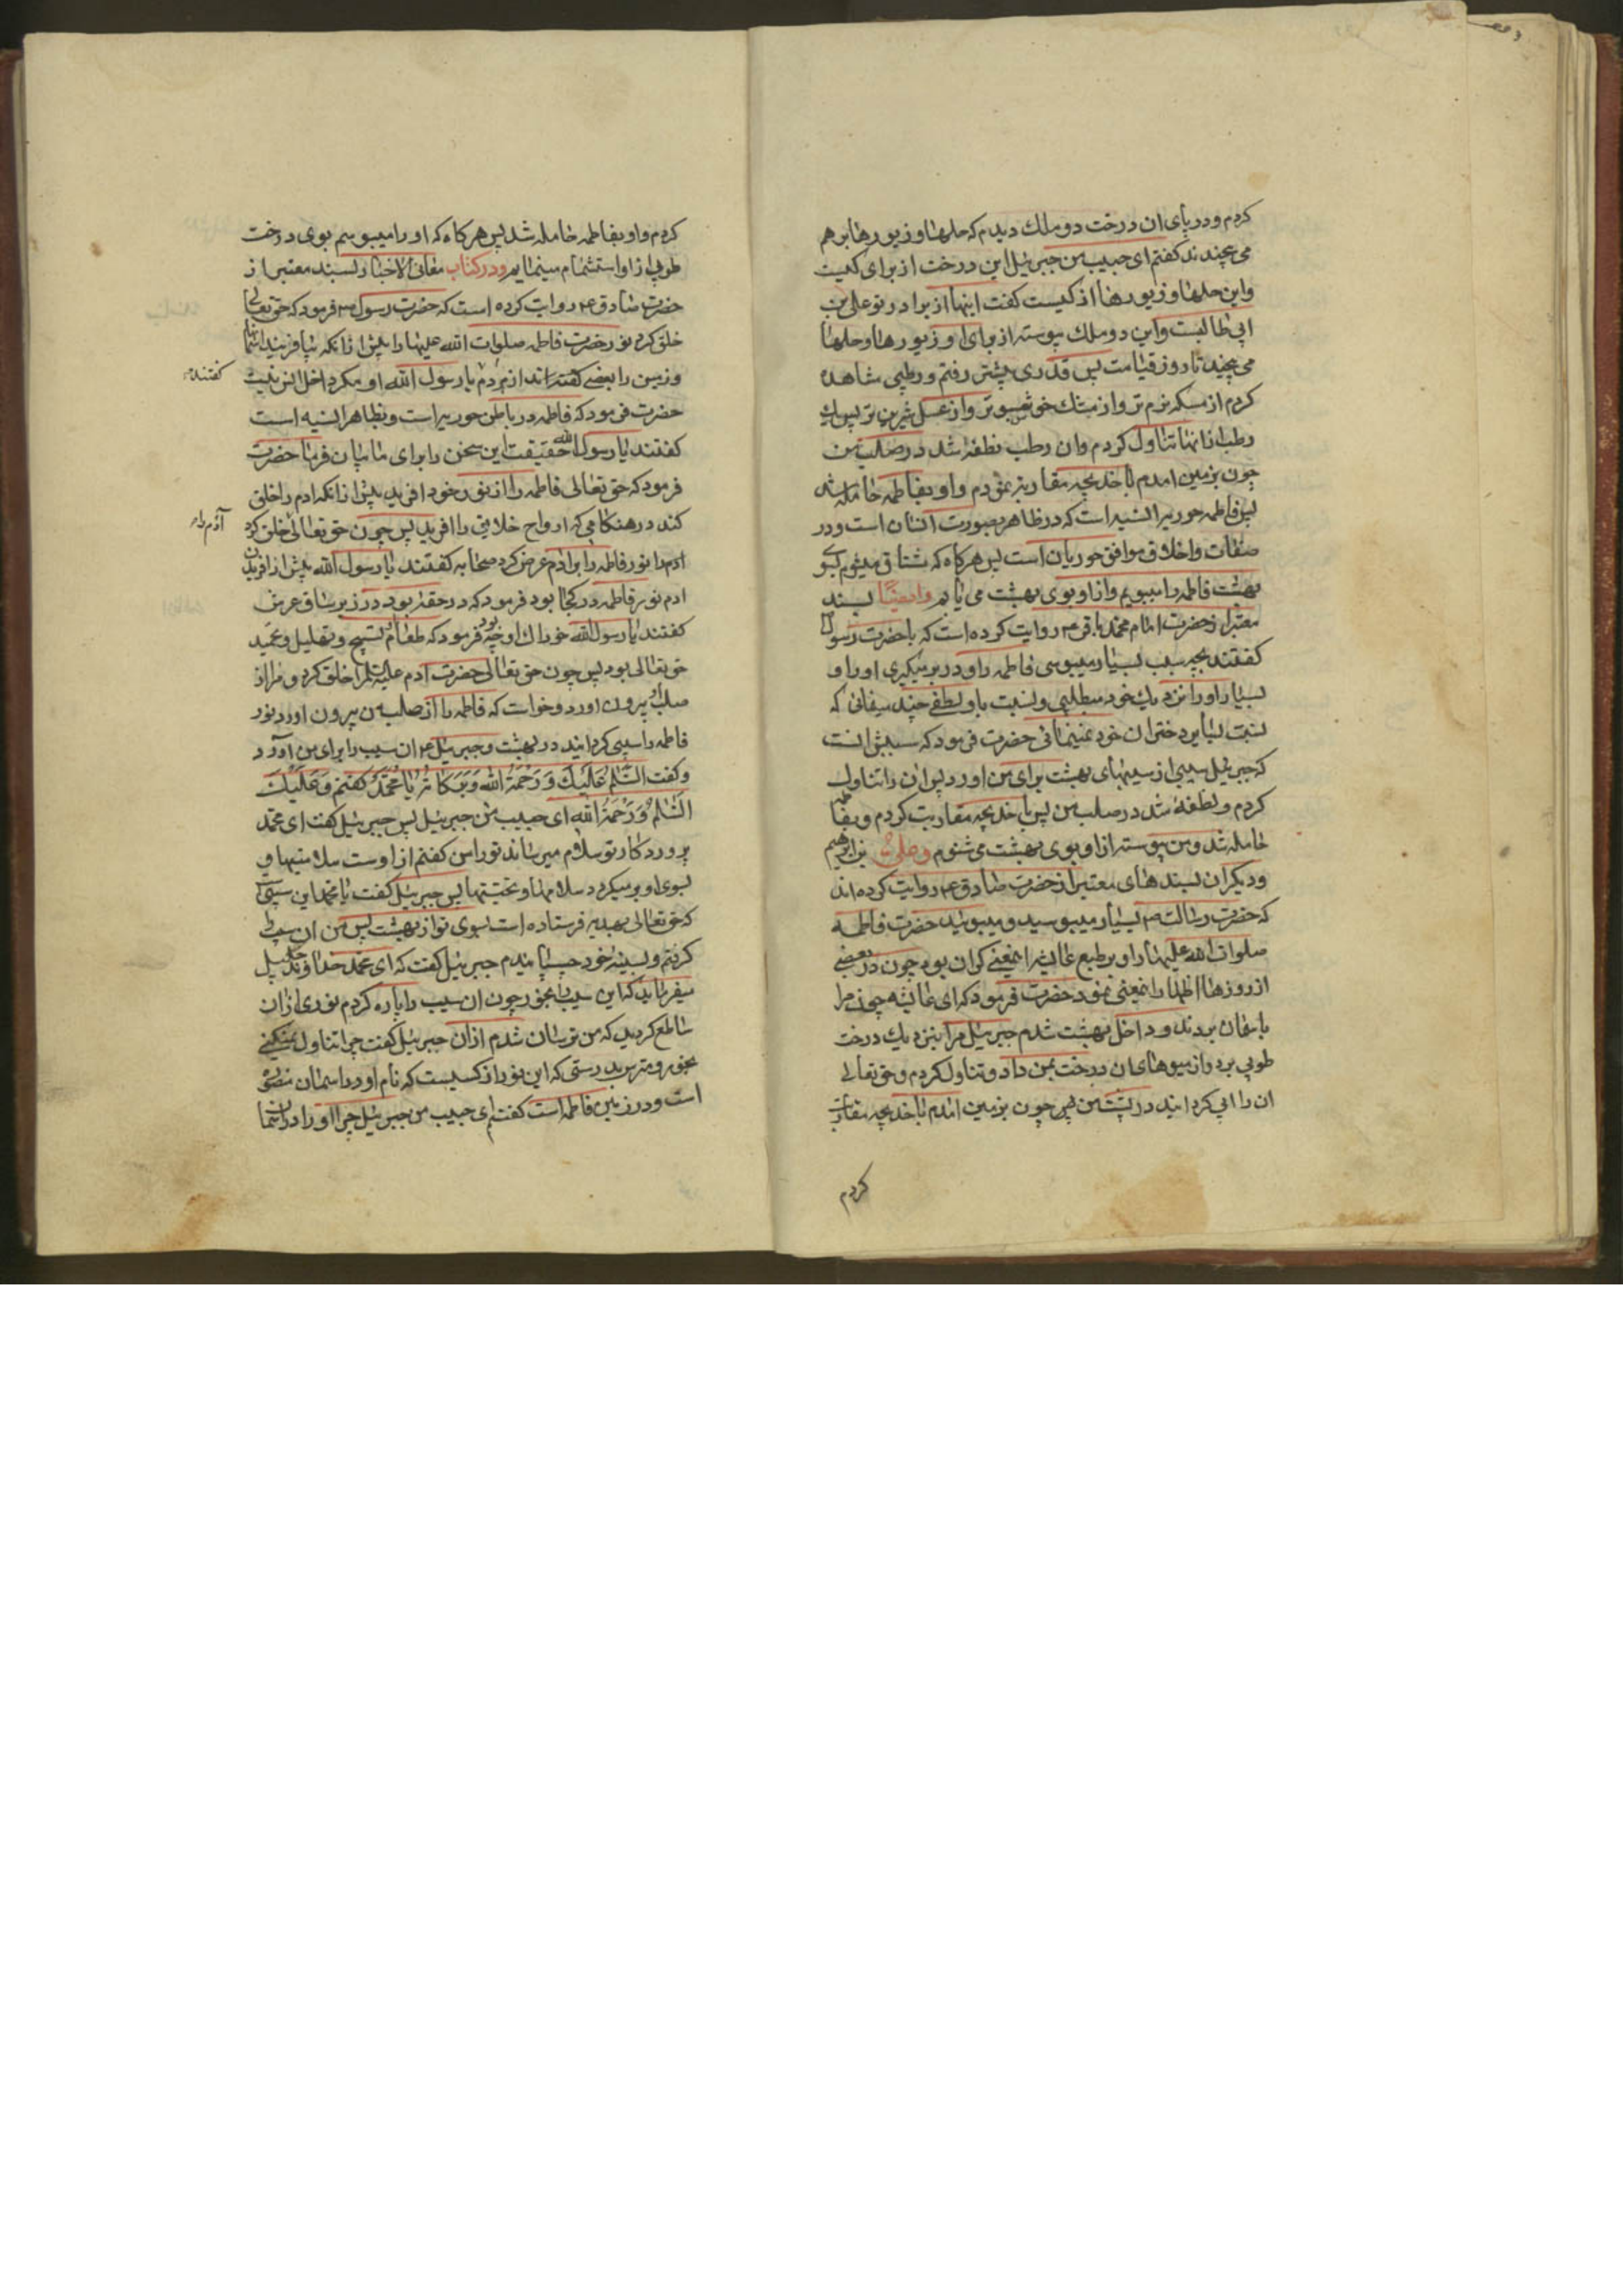 کردم و در پای ان درخت دو ملك دیدم که حلها و زیورها بر هم
می پیچند ند کفتم ای حبیب من جبرئیل این درخت از برای کیست
و این حلها و زیورها از کیست کفت اینها از برادر تو علی بن
ابی طالبست و این دو ملك پیوسته از برای او زیورها و حلها
می پیچند تا روز قیامت پس قدری پیشتر رفتم و رطبی مشاهده
کردم از مسکه نرم تر و از مشك خوشبوتر و از عسل شیرین تر پس یك
رطب از انها تناول کردم وان رطب نطفه شد در صلب من
چون بزمین امدم با خدیجه مقاربه نمودم و او بفاطمه حامله شد
پس فاطمه حوریه انسیه است که در ظاهر بصورت انسان است و در
صفات و اخلاق موافق حوریان است پس هرکاه که مشتاق میشوم ببوی
بهشت فاطمه را میبویم و از او بوی بهشت می یابم و ایضًا بسند
معتبر از حضرت امام محمد باقر ع روایت کرده است که با حضرت رسول
کفتند بچه سبب بسیار میبوسی فاطمه را و در بر میکیری او را و
بسیار او را نزدیك خود میطلبی و نسبت باو لطفی چند میفرمائی که
نسبت بسایر دختران خود نمینمائی حضرت فرمود که سببش انست
که جبرئیل سیبی از سیبهای بهشت برای من اورد پس ان را تناول
کردم و نطفه شد در صلب من پس با خدیجه مقاربت کردم و بفاطمه
حامله شد و من پیوسته از او بوی بهشت می شنوم و علی بن ابرهیم
و دیکران بسندهای معتبر از حضرت صادق ع روایت کرده اند
که حضرت رسالت ص بسیار میبوسید و میبوئید حضرت فاطمه
صلوات الله علیها را و بر طبع عایشه اینمعنی کران بود چون در بعضی
از روزها اظهار اینمعنی نمود حضرت فرمود که ای عایشه چون مرا
باسمان بردند و داخل بهشت شدم جبرئیل مرا بنزدیك درخت
طوبی برد و از میوهای ان درخت بمن داد و تناول کردم و حق تعالی
ان را ابی کردانید در پشت من پس چون بزمین امدم با خدیجه مقاربت
کردم
کردم و او بفاطمه حامله شد پس هرکاه که او را میبوسم بوی درخت
طوبی از او استشمام مینمایم و در کتاب معانی الاخبار بسند معتبر از
حضرت صادق ع روایت کرده است که حضرت رسول ص فرمود که حق تعالی
خلق کرد نور حضرت فاطمه صلوات الله علیها را پیش از انکه بیافریند اسمانها
و زمین را بعضی کفتند از مردم یا رسول الله او مکر داخل انس نیست
کفتند
حضرت فرمود که فاطمه در باطن حوریه است و بظاهر انسیه است
کفتند یا رسول الله حقیقت این سخن را برای ما بیان فرما حضرت
فرمود که حق تعالی فاطمه را از نور خود افرید پیش از انکه ادم را خلق
کند در هنکامی که ارواح خلایق را افرید پس چون حق تعالی خلق کرد
آدم را
ادم را نور فاطمه را بر ادم عرض کرد صحابه کفتند یا رسول الله پیش از افریدن
ادم نور فاطمه در کجا بود فرمود که در حقه بود در زیر ساق عرش
کفتند یا رسول الله خوراك او چه بود فرمود که طعام تسبیح و تهلیل و تحمید
حق تعالی بود پس چون حق تعالی حضرت ادم علیه السلم را خلق کرد و مرا از
صلب او بیرون اورد و خواست که فاطمه را از صلب من بیرون اورد نور
فاطمه را سیبی کردانید در بهشت و جبرئیل ع ان سیب را برای من آورد
و کفت السَّلٰمُ عَلَیْكَ وَ رَحْمَةُ اللهِ وَ بَرَکاتُهُ یا مُحَمَّدُ کفتم وَ عَلَیْكَ
السَّلٰمُ وَ رَحْمَةُ اللهِ ای حبیب من جبرئیل پس جبرئیل کفت ای محمد
پروردکار تو سلام میرساند تو را من کفتم از اوست سلامتیها و
بسوی او بر میکردد سلامها و تحیتها پس جبرئیل کفت یا محمد این سیبی است
که حق تعالی بهدیه فرستاده است بسوی تو از بهشت پس من ان سیب را
کرفتم و بسینه خود چسپانیدم جبرئیل کفت که ای محمد خداوند جلیل
میفرماید که این سیب را بخور چون ان سیب را پاره کردم نوری از ان
ساطع کردید که من ترسان شدم از ان جبرئیل کفت چرا تناول نمیکنی
بخور و مترس بدرستی که این نور از کسیست که نام او در اسمان منصوره
است و در زمین فاطمه است کفتم ای حبیب من جبرئیل چرا او را در اسمان